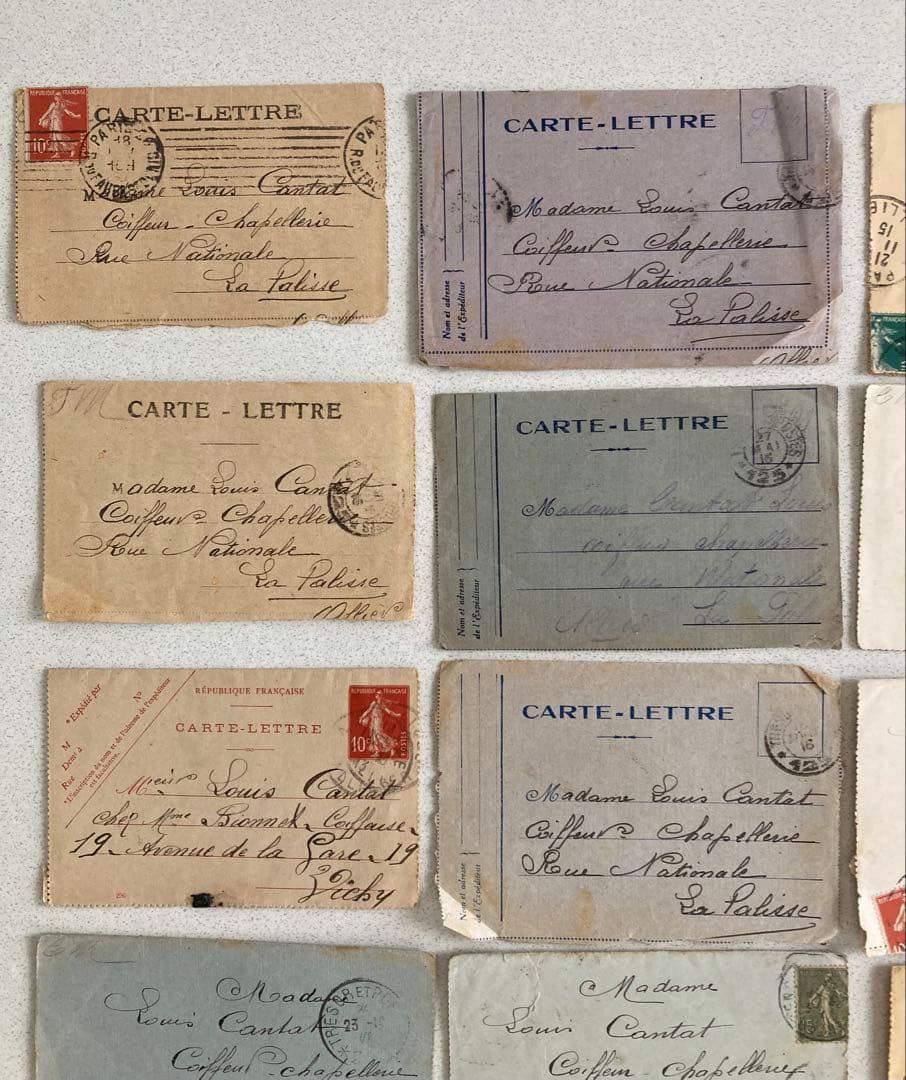 RÉPUBLIQUE FRANÇAISE
10
CARTE-LETTRE
PARIS
Louis Cantat
Coiffeur - Chapellerie
Rue Nationale
La Palisse
CARTE-LETTRE
Madame Louis Cantat
Coiffeur Chapellerie
Rue Nationale
La Palisse
Allier
Nom et adresse
de l'Expéditeur
21
11
15
F M
CARTE - LETTRE
Madame Louis Cantat
Coiffeur Chapellerie
Rue Nationale
La Palisse
Allier
CARTE-LETTRE
27
MAI
* 125 *
Madame Cantat Louis
coiffeur chapellerie
rue Nationale
La
Nom et adresse
de l'Expéditeur
RÉPUBLIQUE FRANÇAISE
CARTE-LETTRE
* Expédié par
No
M
Demt à
Rue
* L'inscription du nom et de l'adresse de l'expéditeur
est facultative.
RÉPUBLIQUE FRANÇAISE
10c
POSTES
Louis Cantat
chez Mme Bionnet Coiffeuse
19 - Avenue de la Gare - 19
Vichy
CARTE-LETTRE
Madame Louis Cantat
Coiffeur Chapellerie
Rue Nationale
La Palisse
Nom et adresse
de l'Expéditeur
Madame
Louis Cantat
Coiffeur - chapellerie
TRESOR ET
23
Madame
Louis Cantat
Coiffeur - Chapellerie
15